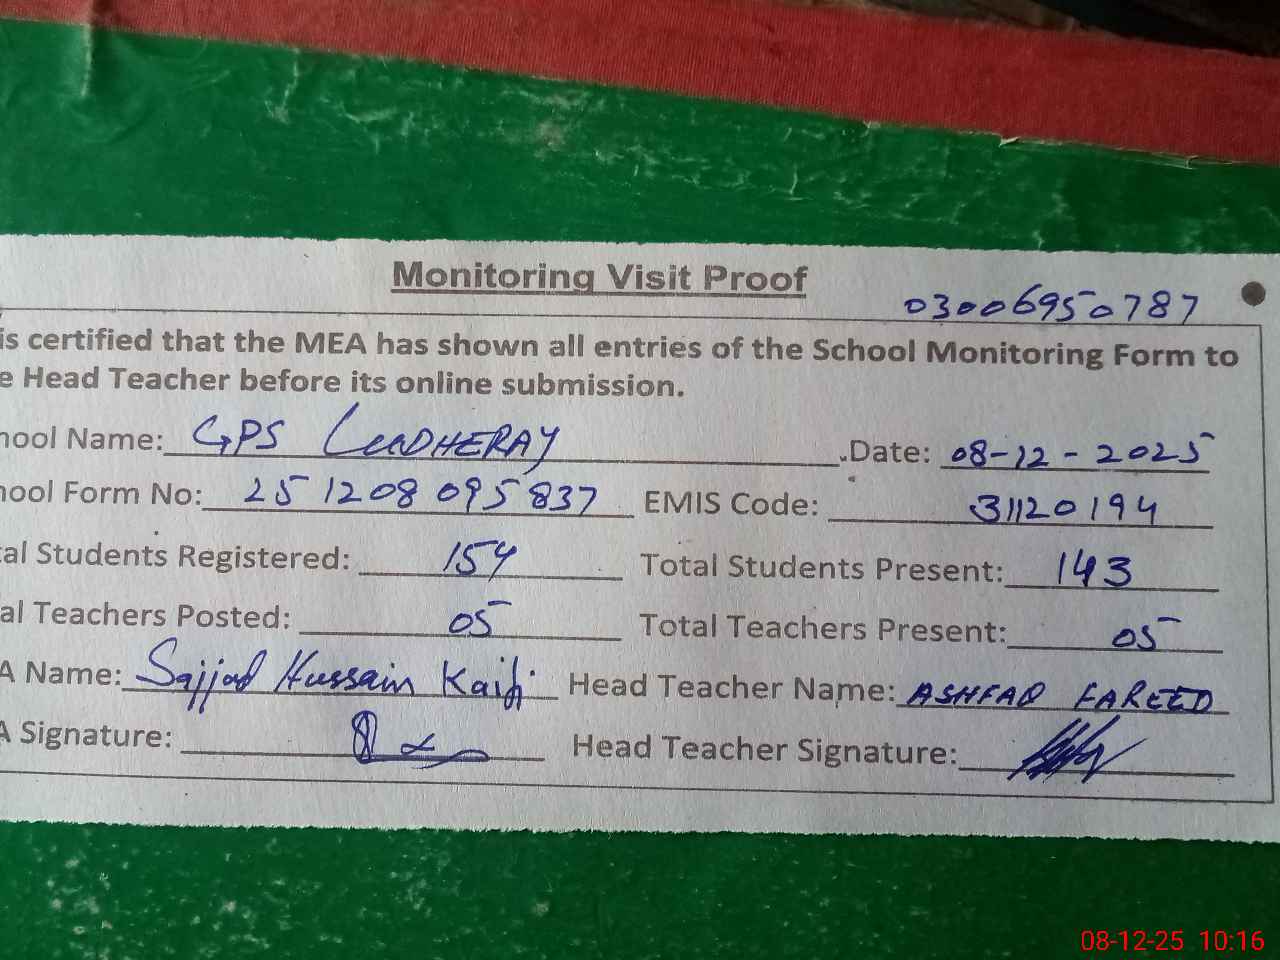 Monitoring Visit Proof
03006950787
is certified that the MEA has shown all entries of the School Monitoring Form to
e Head Teacher before its online submission.
hool Name: GPS LUDHERAY .Date: 08-12-2025
hool Form No: 251208095837 EMIS Code: 31120194
al Students Registered: 154 Total Students Present: 143
al Teachers Posted: 05 Total Teachers Present: 05
A Name: Sajjad Hussain Kaifi Head Teacher Name: ASHFAQ FAREED
A Signature: Head Teacher Signature:
08-12-25 10:16